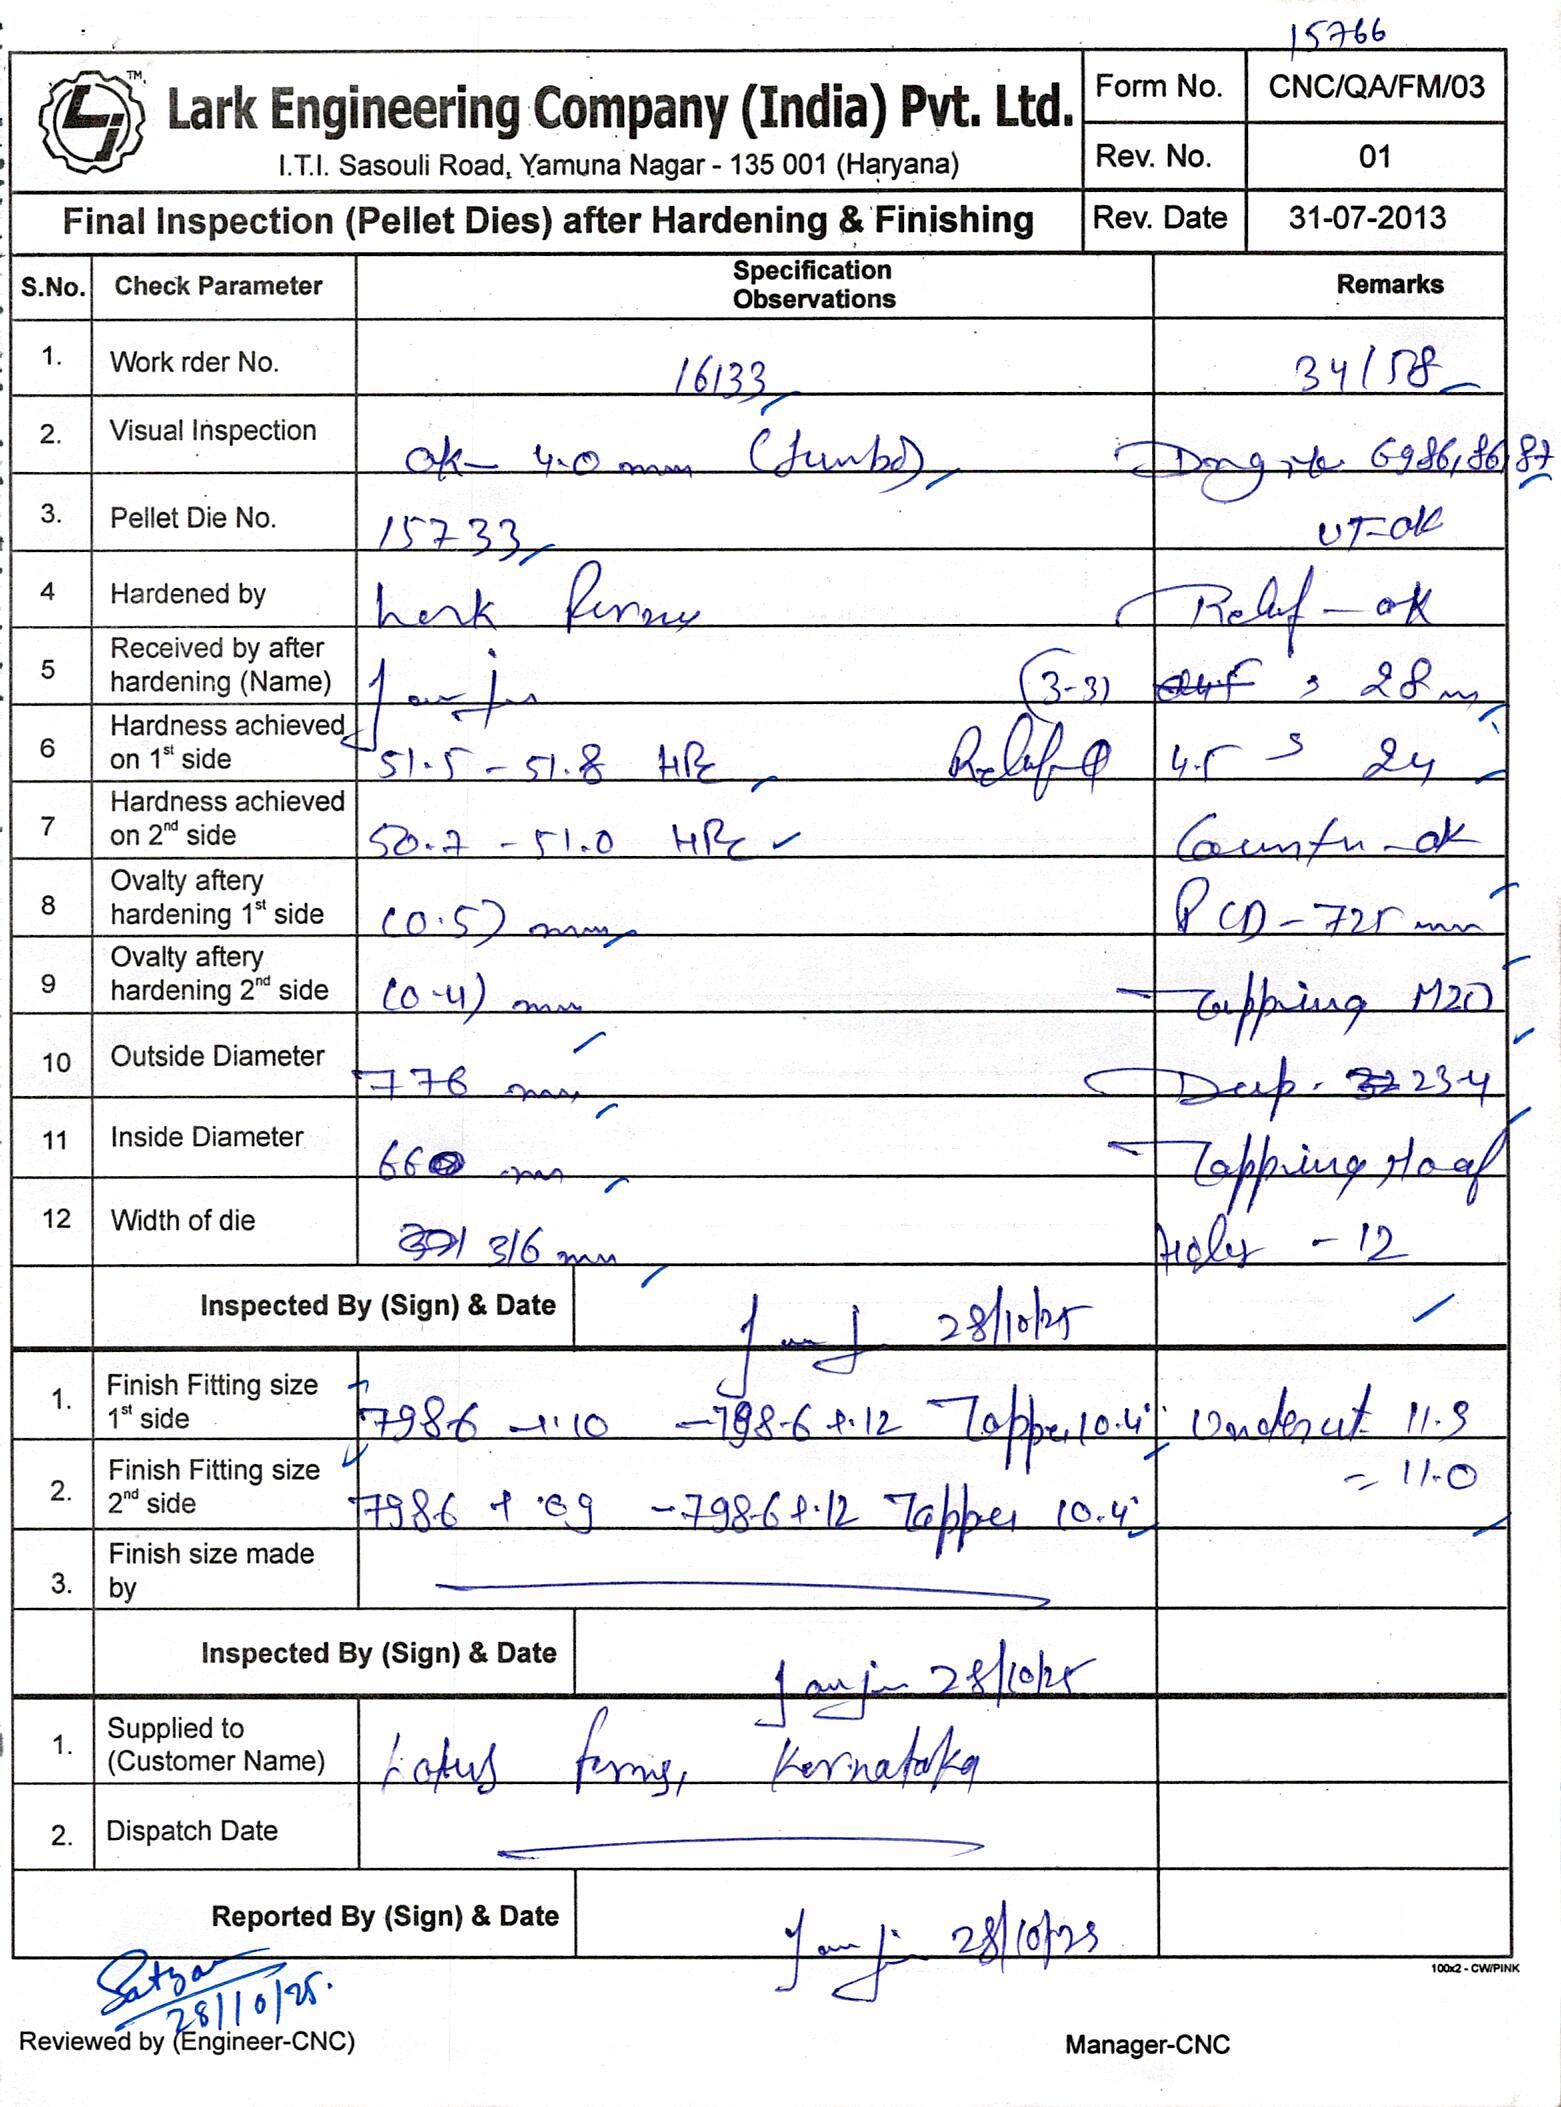 15766
TM
Lark Engineering Company (India) Pvt. Ltd.
I.T.I. Sasouli Road, Yamuna Nagar - 135 001 (Haryana)
Form No. CNC/QA/FM/03
Rev. No. 01
Final Inspection (Pellet Dies) after Hardening & Finishing
Rev. Date 31-07-2013
S.No. Check Parameter Specification Observations Remarks
1. Work rder No. 16133 34/58
2. Visual Inspection ok- 4.0 mm (Jumbo) 6986,86,87
3. Pellet Die No. 15733 UT-ok
4 Hardened by Lark Relief - ok
5 Received by after hardening (Name) (3-3) 28
6 Hardness achieved on 1st side 51.5 - 51.8 HRc Relief 4.5 24
7 Hardness achieved on 2nd side 50.7 - 51.0 HRc Counter - ok
8 Ovalty aftery hardening 1st side (0.5) mm PCD - 725 mm
9 Ovalty aftery hardening 2nd side (0.4) mm Tapping M20
10 Outside Diameter 776 mm Deep. 234
11 Inside Diameter 660 mm Tapping
12 Width of die 316 mm Holes - 12
Inspected By (Sign) & Date 28/10/25
1. Finish Fitting size 1st side 798.6 +.10 - 798.6 +.12 Tapper 10.4° Undercut 11.3
2. Finish Fitting size 2nd side 798.6 + .09 - 798.6 +.12 Tapper 10.4° = 11.0
3. Finish size made by
Inspected By (Sign) & Date 28/10/25
1. Supplied to (Customer Name) Lotus farms, Kernataka
2. Dispatch Date
Reported By (Sign) & Date 28/10/25
100x2 - CW/PINK
28/10/25.
Reviewed by (Engineer-CNC) Manager-CNC